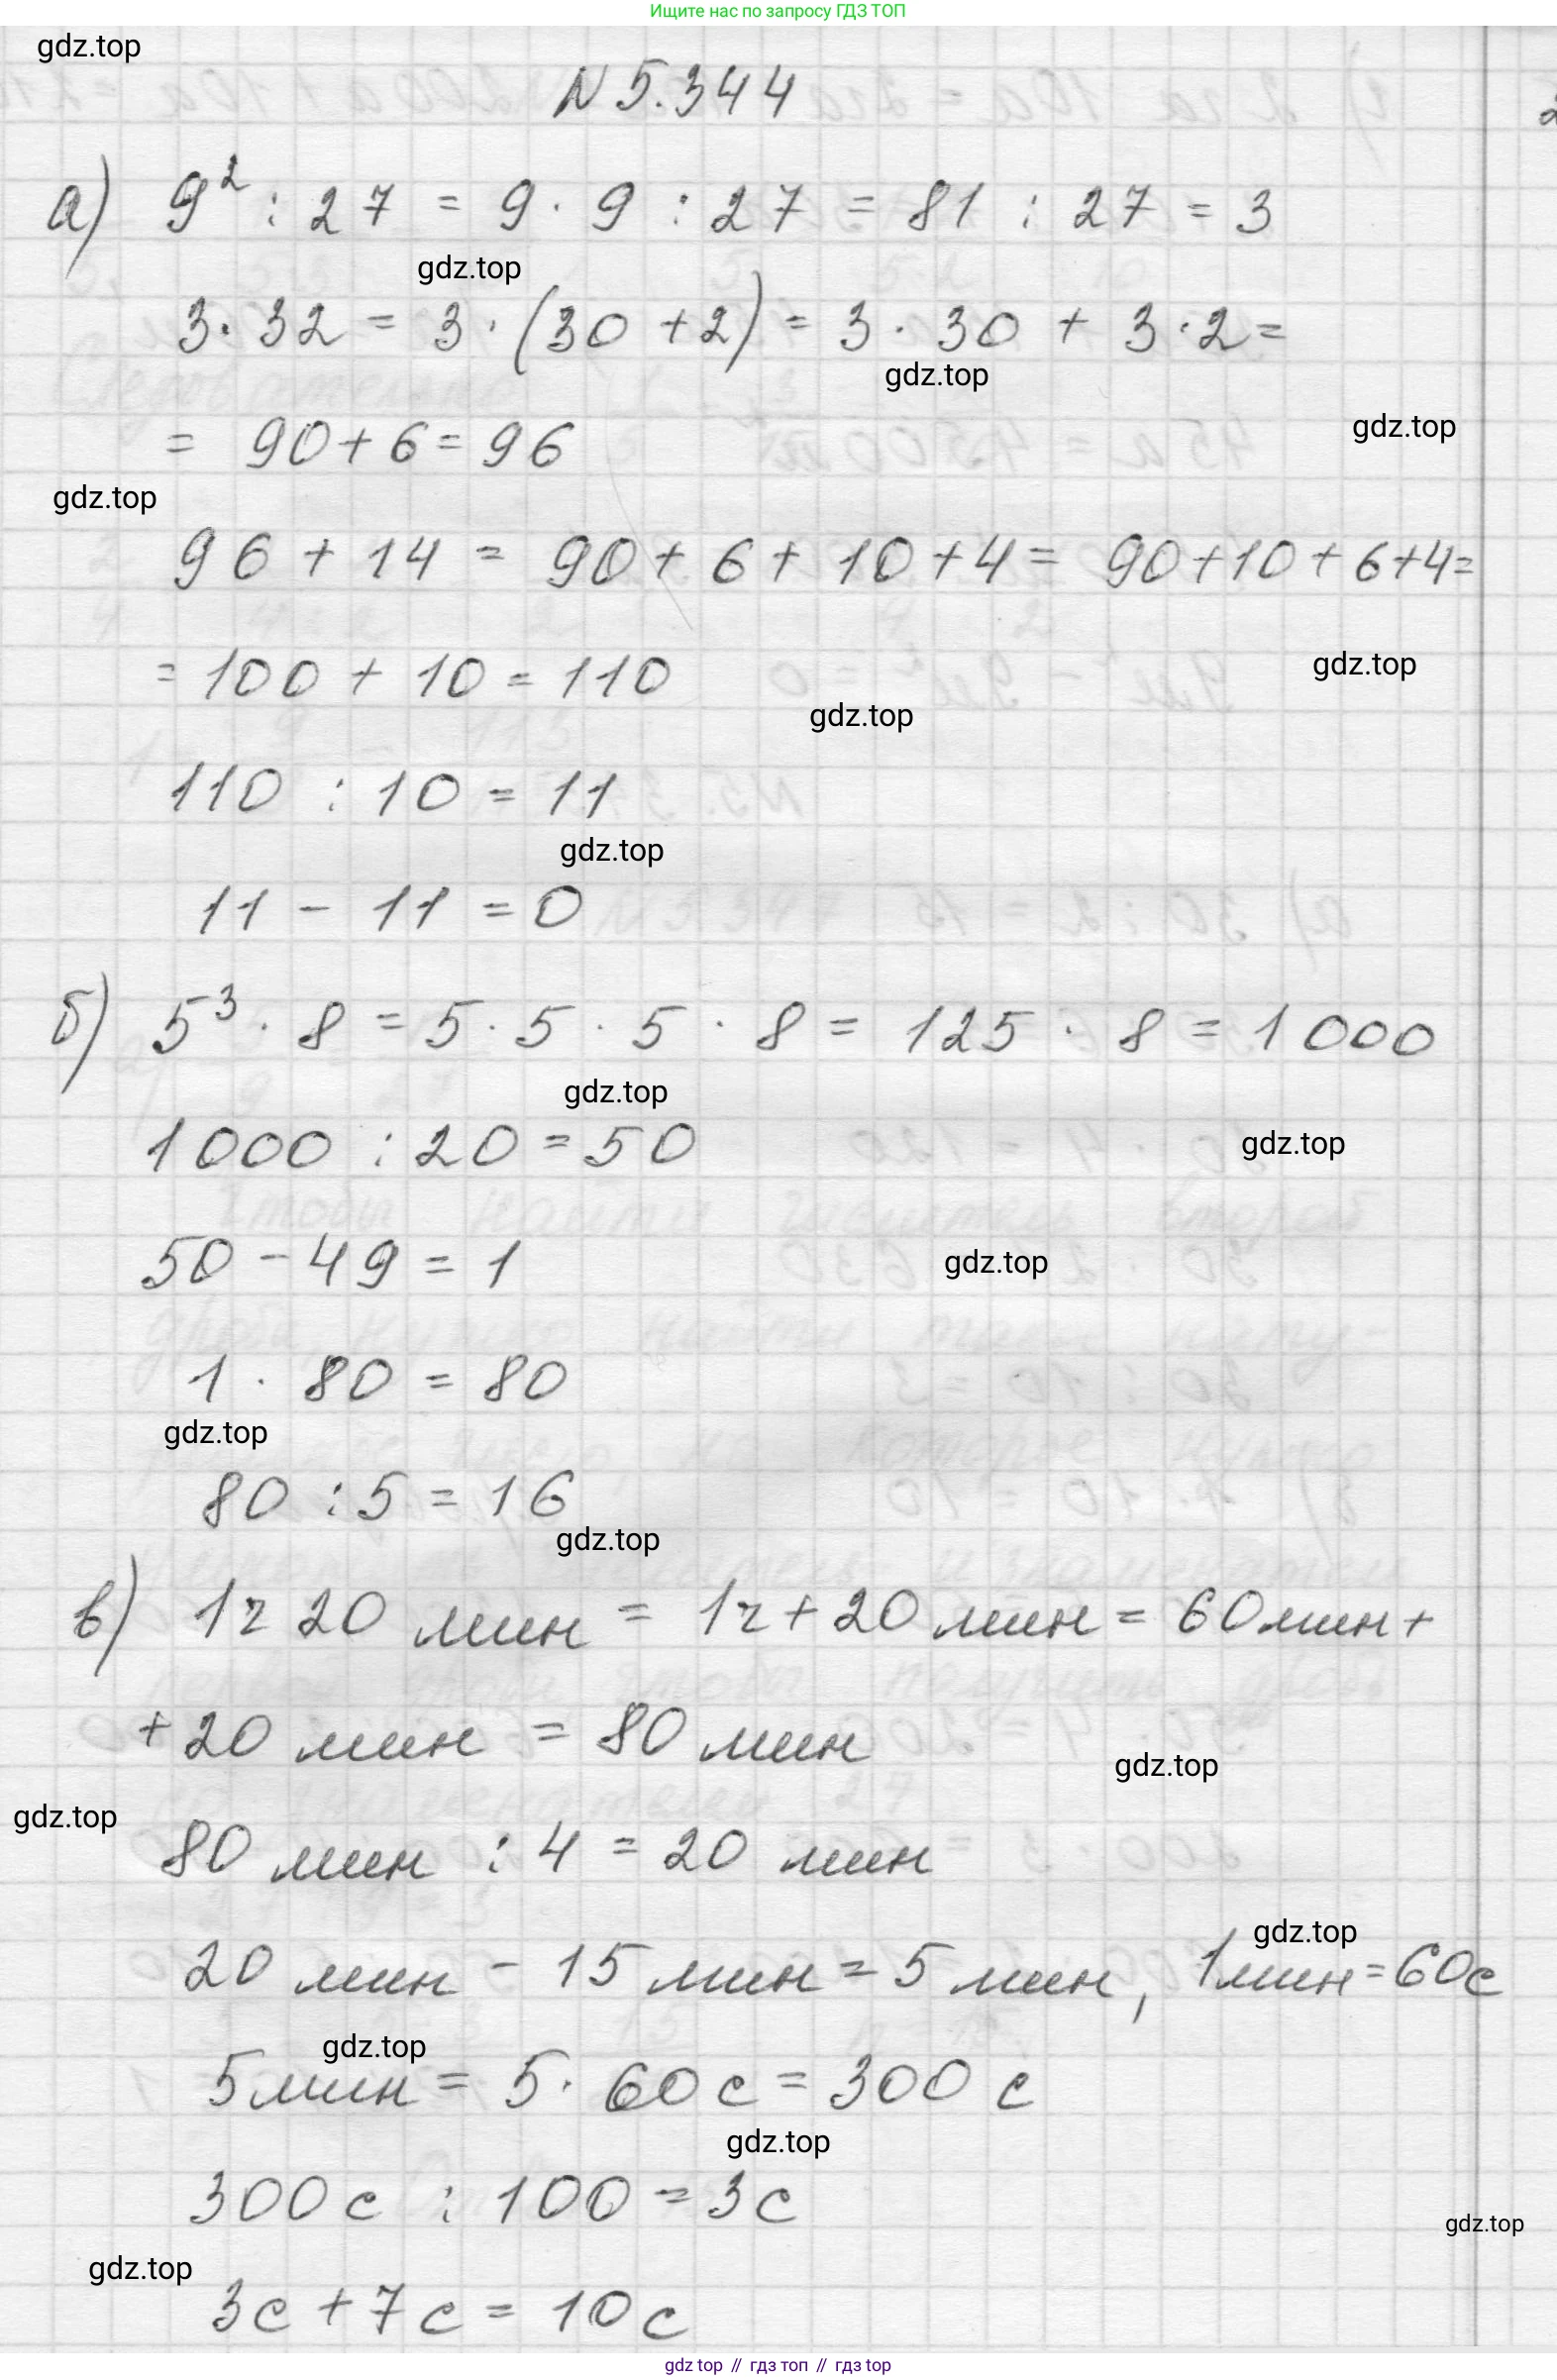 Ищите нас по запросу ГДЗ ТОП
gdz.top
N 5.344
2
а) 9² : 27 = 9 · 9 : 27 = 81 : 27 = 3
gdz.top
3 · 32 = 3 · (30 + 2) = 3 · 30 + 3 · 2 =
gdz.top
= 90 + 6 = 96
gdz.top
gdz.top
96 + 14 = 90 + 6 + 10 + 4 = 90 + 10 + 6 + 4 =
= 100 + 10 = 110
gdz.top
gdz.top
110 : 10 = 11
gdz.top
11 - 11 = 0
б) 5³ · 8 = 5 · 5 · 5 · 8 = 125 · 8 = 1000
gdz.top
1000 : 20 = 50
gdz.top
50 - 49 = 1
gdz.top
1 · 80 = 80
gdz.top
80 : 5 = 16
gdz.top
в) 1ч 20 мин = 1ч + 20 мин = 60 мин +
+ 20 мин = 80 мин
gdz.top
gdz.top
80 мин : 4 = 20 мин
gdz.top
20 мин - 15 мин = 5 мин, 1мин = 60с
gdz.top
5 мин = 5 · 60 с = 300 с
gdz.top
300 с : 100 = 3с
gdz.top
gdz.top
3с + 7с = 10с
gdz top // гдз топ // гдз top